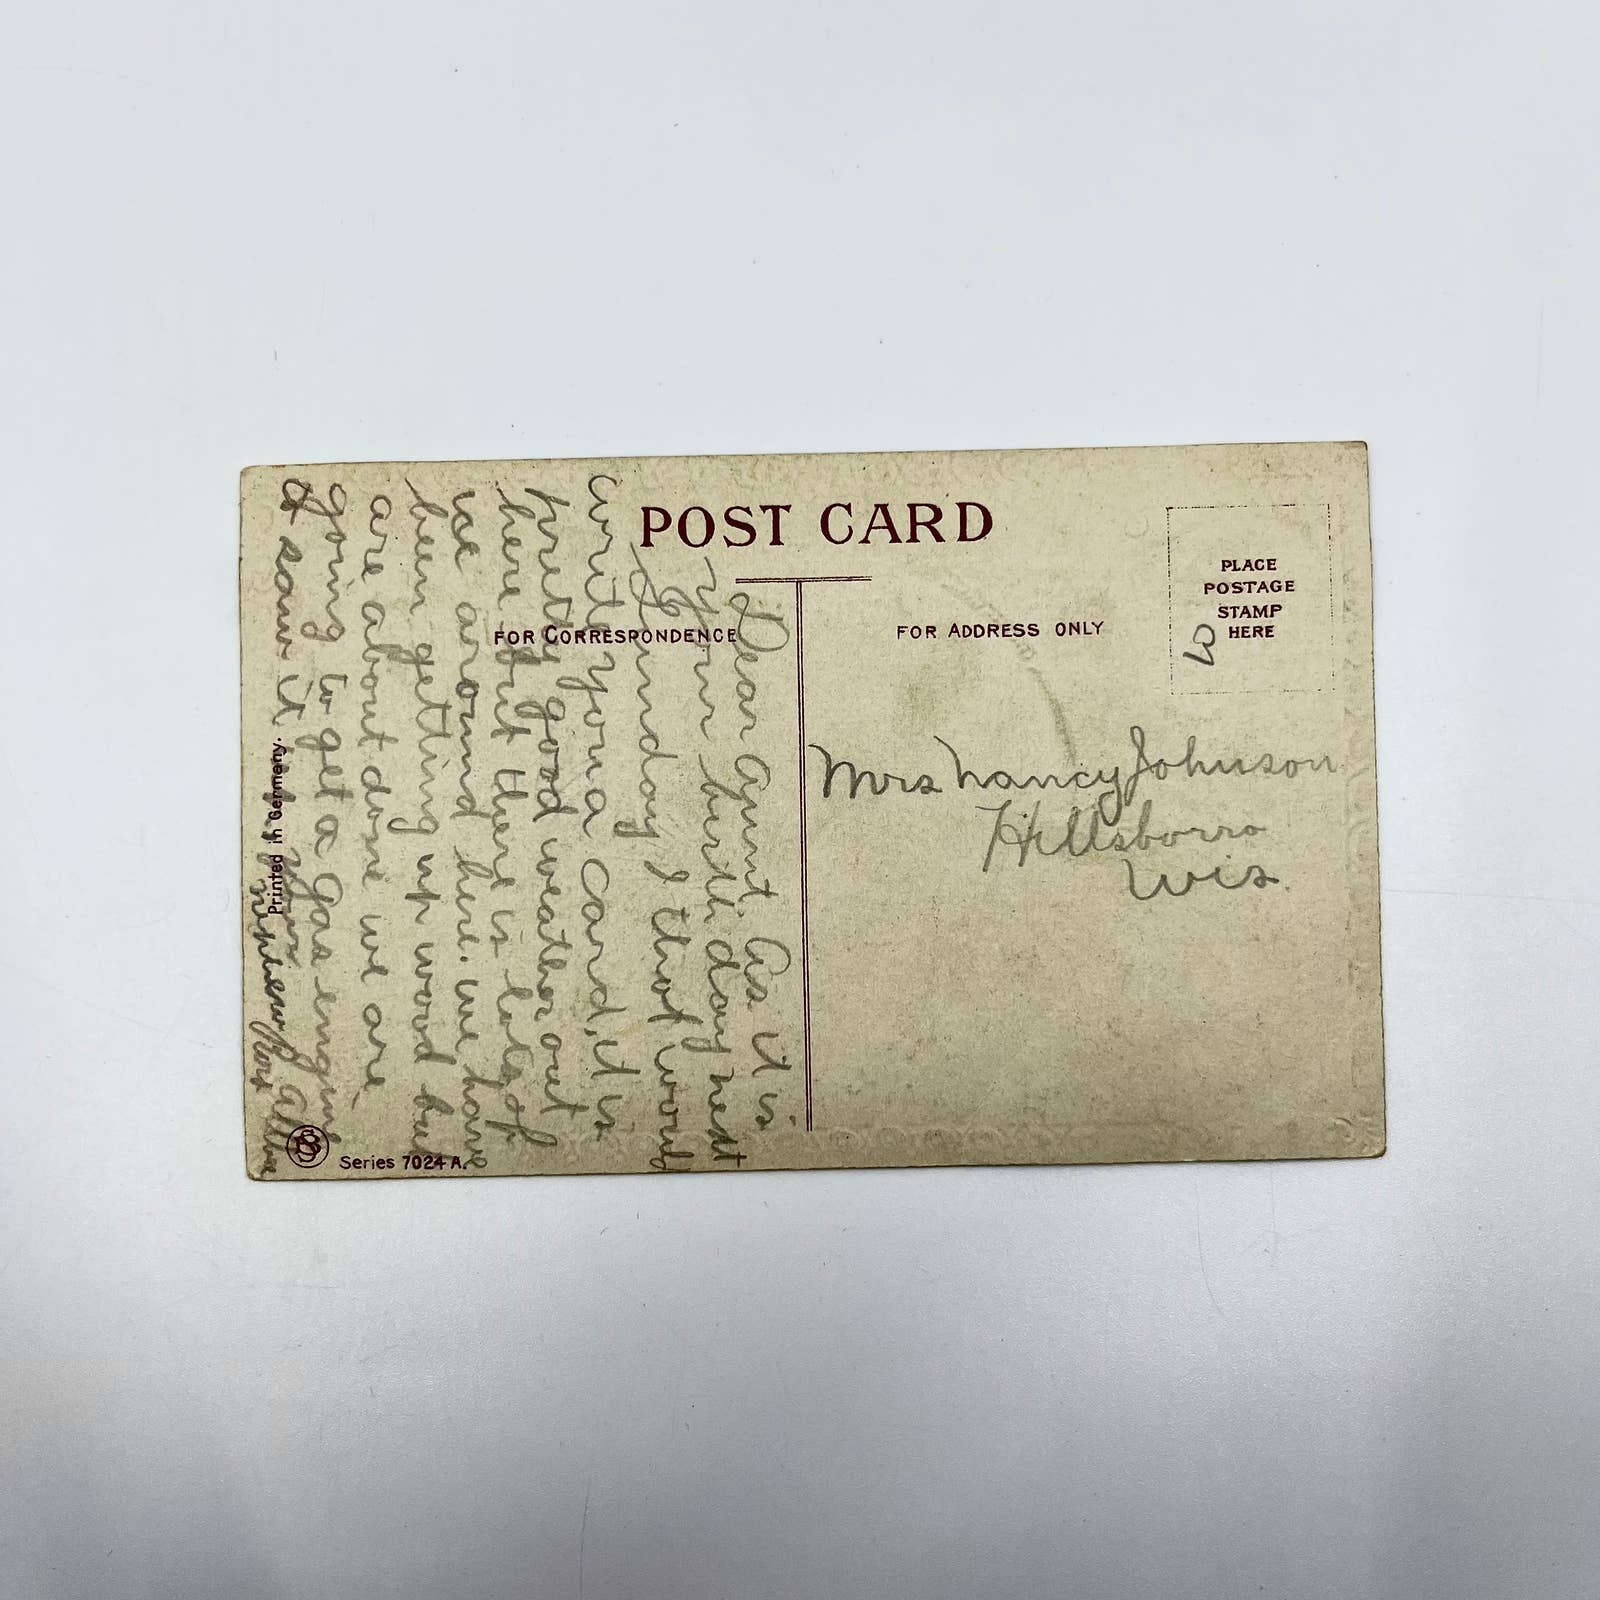 POST CARD
FOR CORRESPONDENCE
FOR ADDRESS ONLY
PLACE
POSTAGE
STAMP
HERE
Dear Aunt. As it is
your birth day next
Sunday I thot would
write you a card, it is
pretty good weather out
here but there is lots of
ice around here. we have
been getting up wood but
are about done we are
going to get a Gas engine
& saw it
your
nephew
Mrs Nancy Johnson
Hillsborro
Wis.
Printed in Germany.
Series 7024 A.